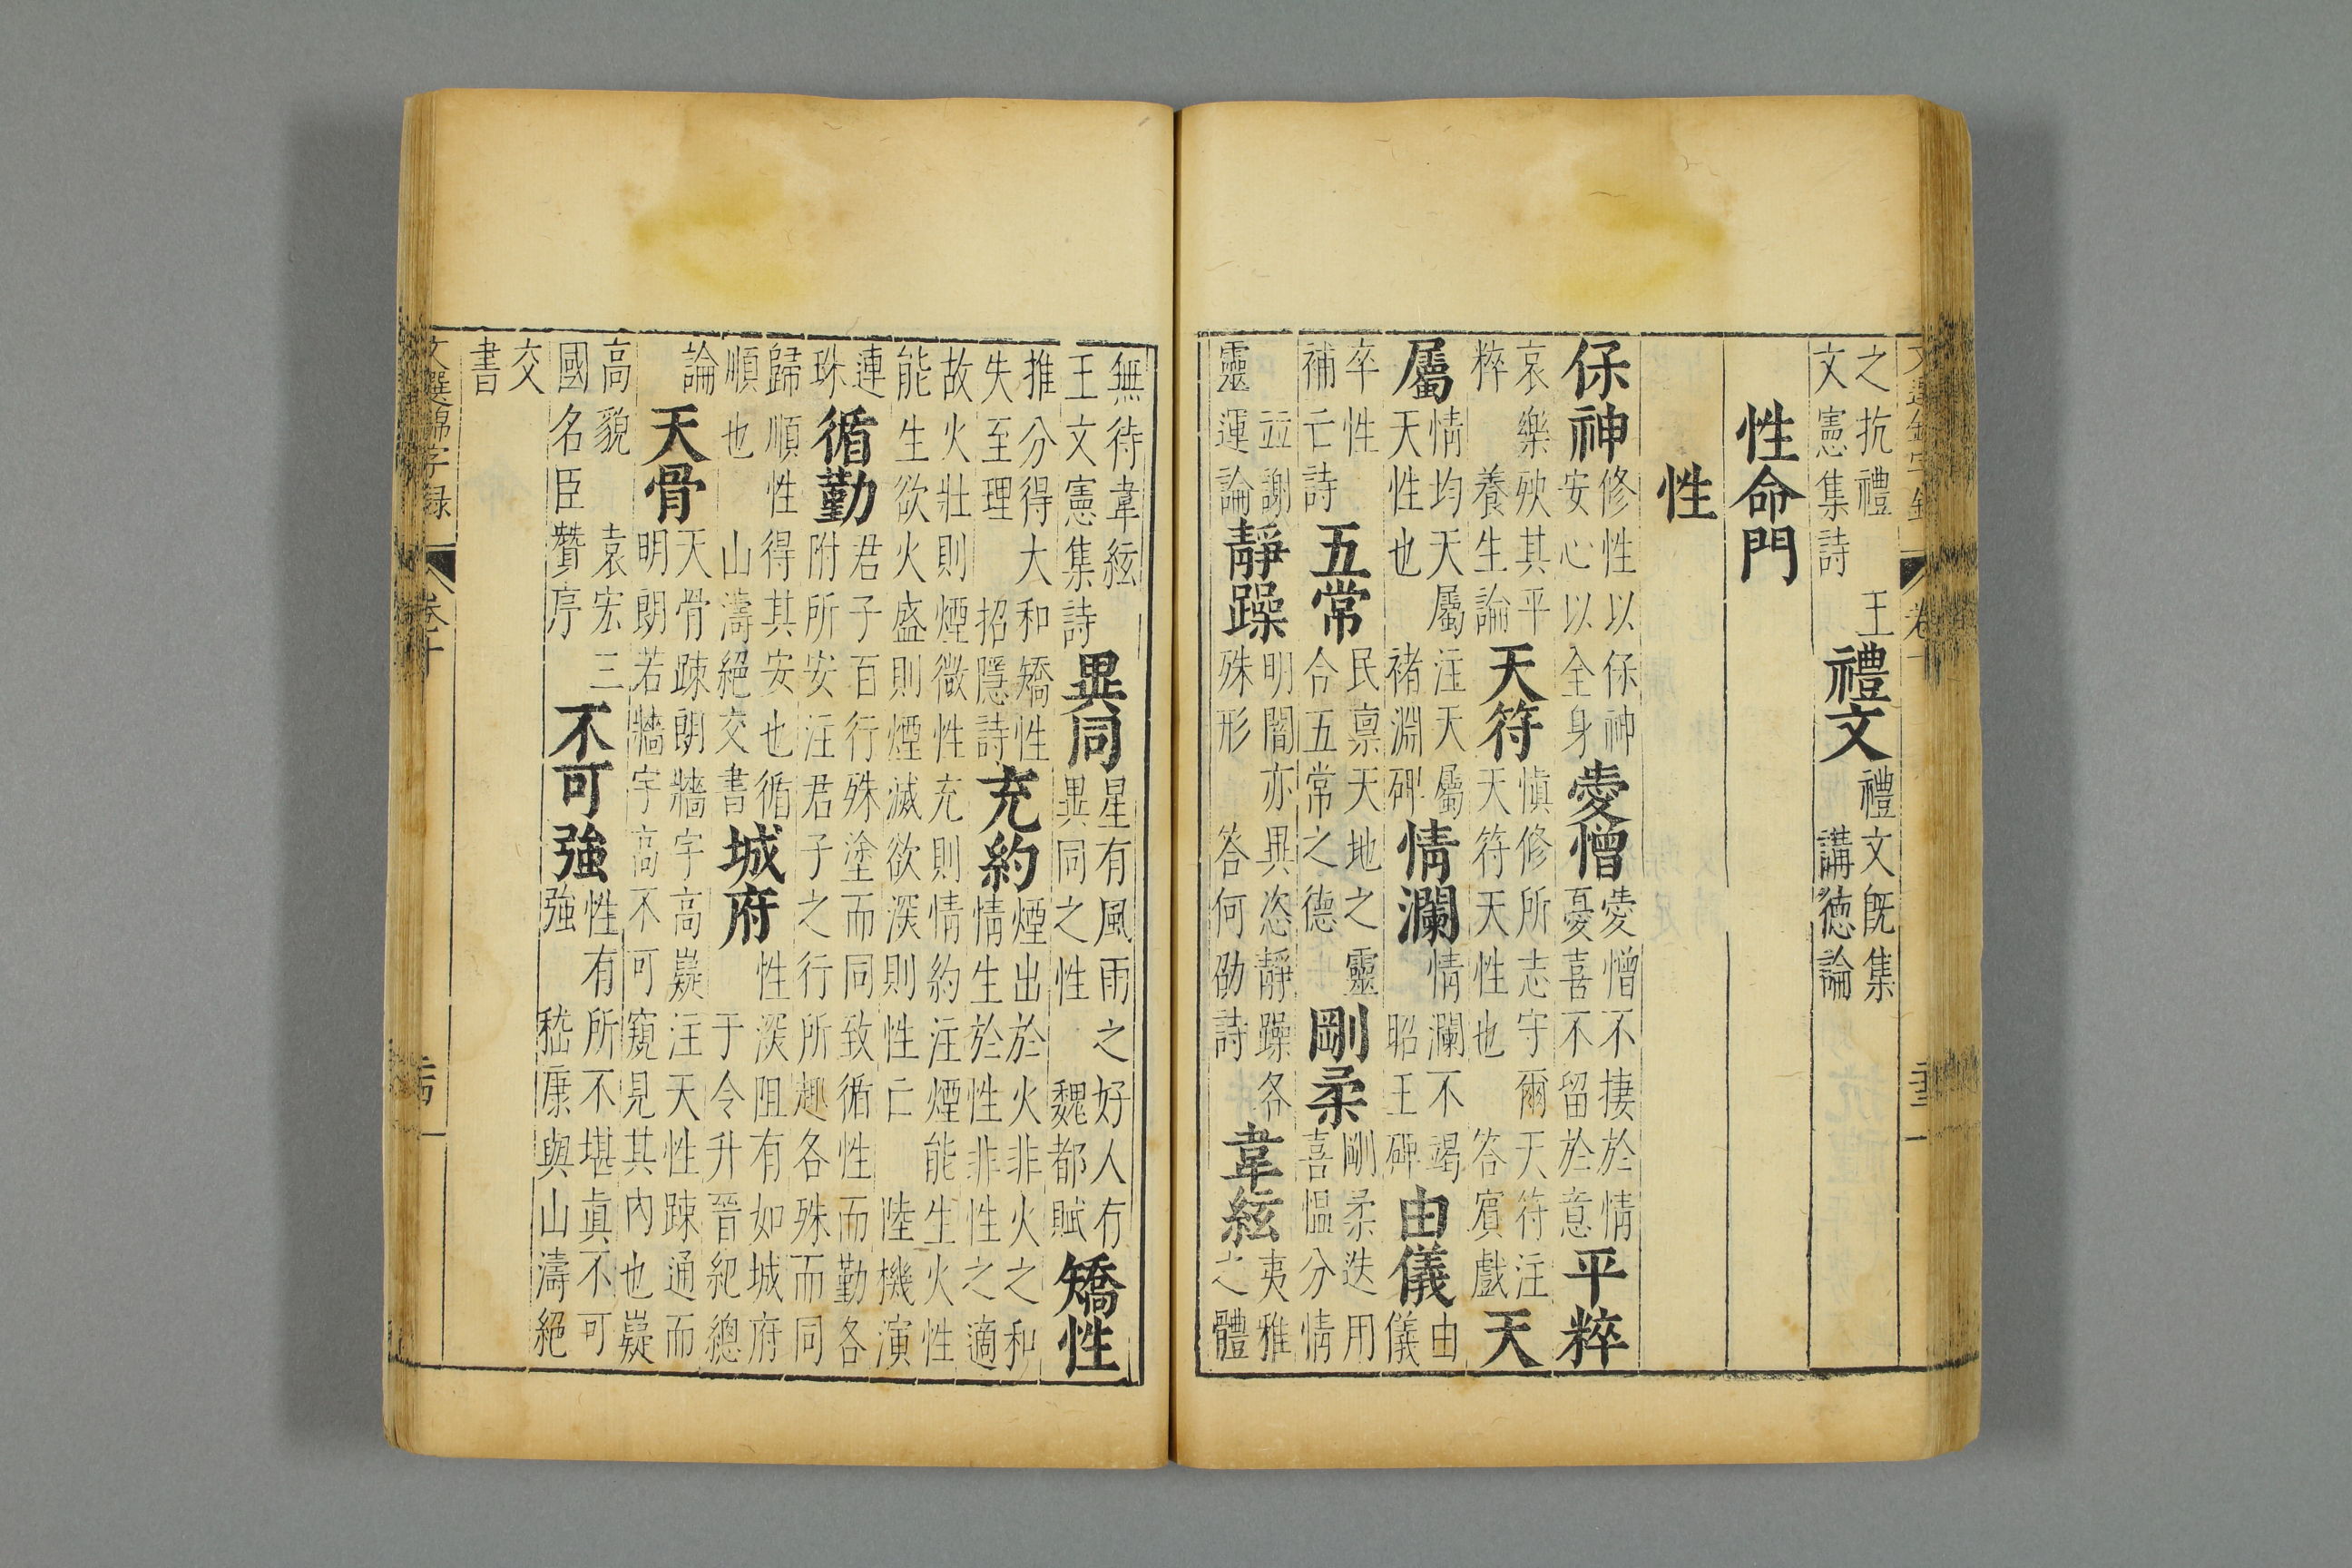 之抗禮 王
文憲集詩
禮文
禮文既集
講德論
性命門
性
保神
修性以保神
安心以全身
愛憎
愛憎不棲於情
憂喜不留於意
平粹
哀樂殃其平
粹 養生論
天符
慎修所志守爾天符注
天符天性也 答賓戲
天
屬
情均天屬注天屬
天性也 褚淵碑
情瀾
情瀾不竭
昭王碑
由儀
由
儀
卒性
補亡詩
五常
民禀天地之靈
合五常之德
剛柔
剛柔迭用
喜愠分情
竝謝
靈運論
靜躁
明闇亦異恣靜躁各
殊形 答何劭詩
韋絃
夷雅
之體
無待韋絃
王文憲集詩
異同
星有風雨之好人有
異同之性 魏都賦
矯性
推分得大和矯性
失至理 招隱詩
充約
煙出於火非火之和
情生於性非性之適
故火壯則煙微性充則情約注煙能生火性
能生欲火盛則煙滅欲深則性亡 陸機演
連
珠
循勤
君子百行殊塗而同致循性而勤各
附所安注君子之行所趣各殊而同
歸順性得其安也循
順也 山濤絕交書
城府
性深阻有如城府
于令升晉紀總
論
天骨
天骨疎朗牆宇高嶷注天性疎通而
明朗若牆宇高不可窺見其內也嶷
高貌 袁宏三
國名臣贊序
不可強
性有所不堪真不可
強 嵇康與山濤絕
交
書
文選錦字錄 卷十